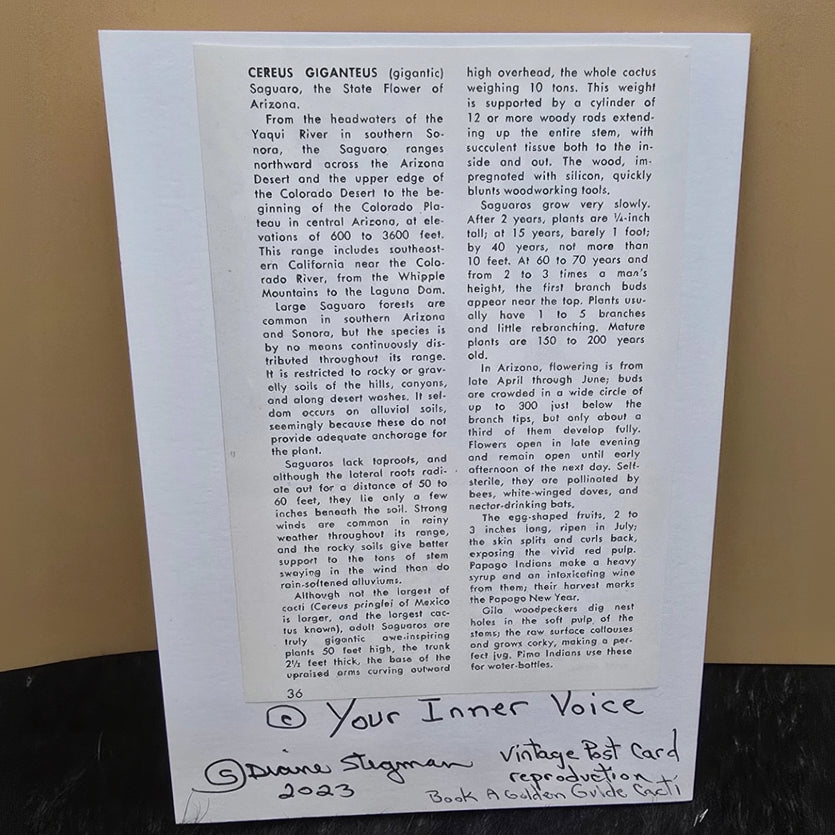 CEREUS GIGANTEUS (gigantic)
Saguaro, the State Flower of
Arizona.
From the headwaters of the
Yaqui River in southern So-
nora, the Saguaro ranges
northward across the Arizona
Desert and the upper edge of
the Colorado Desert to the be-
ginning of the Colorado Pla-
teau in central Arizona, at ele-
vations of 600 to 3600 feet.
This range includes southeast-
ern California near the Colo-
rado River, from the Whipple
Mountains to the Laguna Dam.
Large Saguaro forests are
common in southern Arizona
and Sonora, but the species is
by no means continuously dis-
tributed throughout its range.
It is restricted to rocky or grav-
elly soils of the hills, canyons,
and along desert washes. It sel-
dom occurs on alluvial soils,
seemingly because these do not
provide adequate anchorage for
the plant.
Saguaros lack taproots, and
although the lateral roots radi-
ate out for a distance of 50 to
60 feet, they lie only a few
inches beneath the soil. Strong
winds are common in rainy
weather throughout its range,
and the rocky soils give better
support to the tons of stem
swaying in the wind than do
rain-softened alluviums.
Although not the largest of
cacti (Cereus pringlei of Mexico
is larger, and the largest cac-
tus known), adult Saguaros are
truly gigantic awe-inspiring
plants 50 feet high, the trunk
2½ feet thick, the base of the
upraised arms curving outward
36
high overhead, the whole cactus
weighing 10 tons. This weight
is supported by a cylinder of
12 or more woody rods extend-
ing up the entire stem, with
succulent tissue both to the in-
side and out. The wood, im-
pregnated with silicon, quickly
blunts woodworking tools.
Saguaros grow very slowly.
After 2 years, plants are ¼-inch
tall; at 15 years, barely 1 foot;
by 40 years, not more than
10 feet. At 60 to 70 years and
from 2 to 3 times a man's
height, the first branch buds
appear near the top. Plants usu-
ally have 1 to 5 branches
and little rebranching. Mature
plants are 150 to 200 years
old.
In Arizona, flowering is from
late April through June; buds
are crowded in a wide circle of
up to 300 just below the
branch tips, but only about a
third of them develop fully.
Flowers open in late evening
and remain open until early
afternoon of the next day. Self-
sterile, they are pollinated by
bees, white-winged doves, and
nectar-drinking bats.
The egg-shaped fruits, 2 to
3 inches long, ripen in July;
the skin splits and curls back,
exposing the vivid red pulp.
Papago Indians make a heavy
syrup and an intoxicating wine
from them; their harvest marks
the Papago New Year.
Gila woodpeckers dig nest
holes in the soft pulp of the
stems; the raw surface callouses
and grows corky, making a per-
fect jug. Pima Indians use these
for water-bottles.
© Your Inner Voice
Ⓢ Diane Stegman
2023
Vintage Post Card
reproduction
Book A Golden Guide Cacti